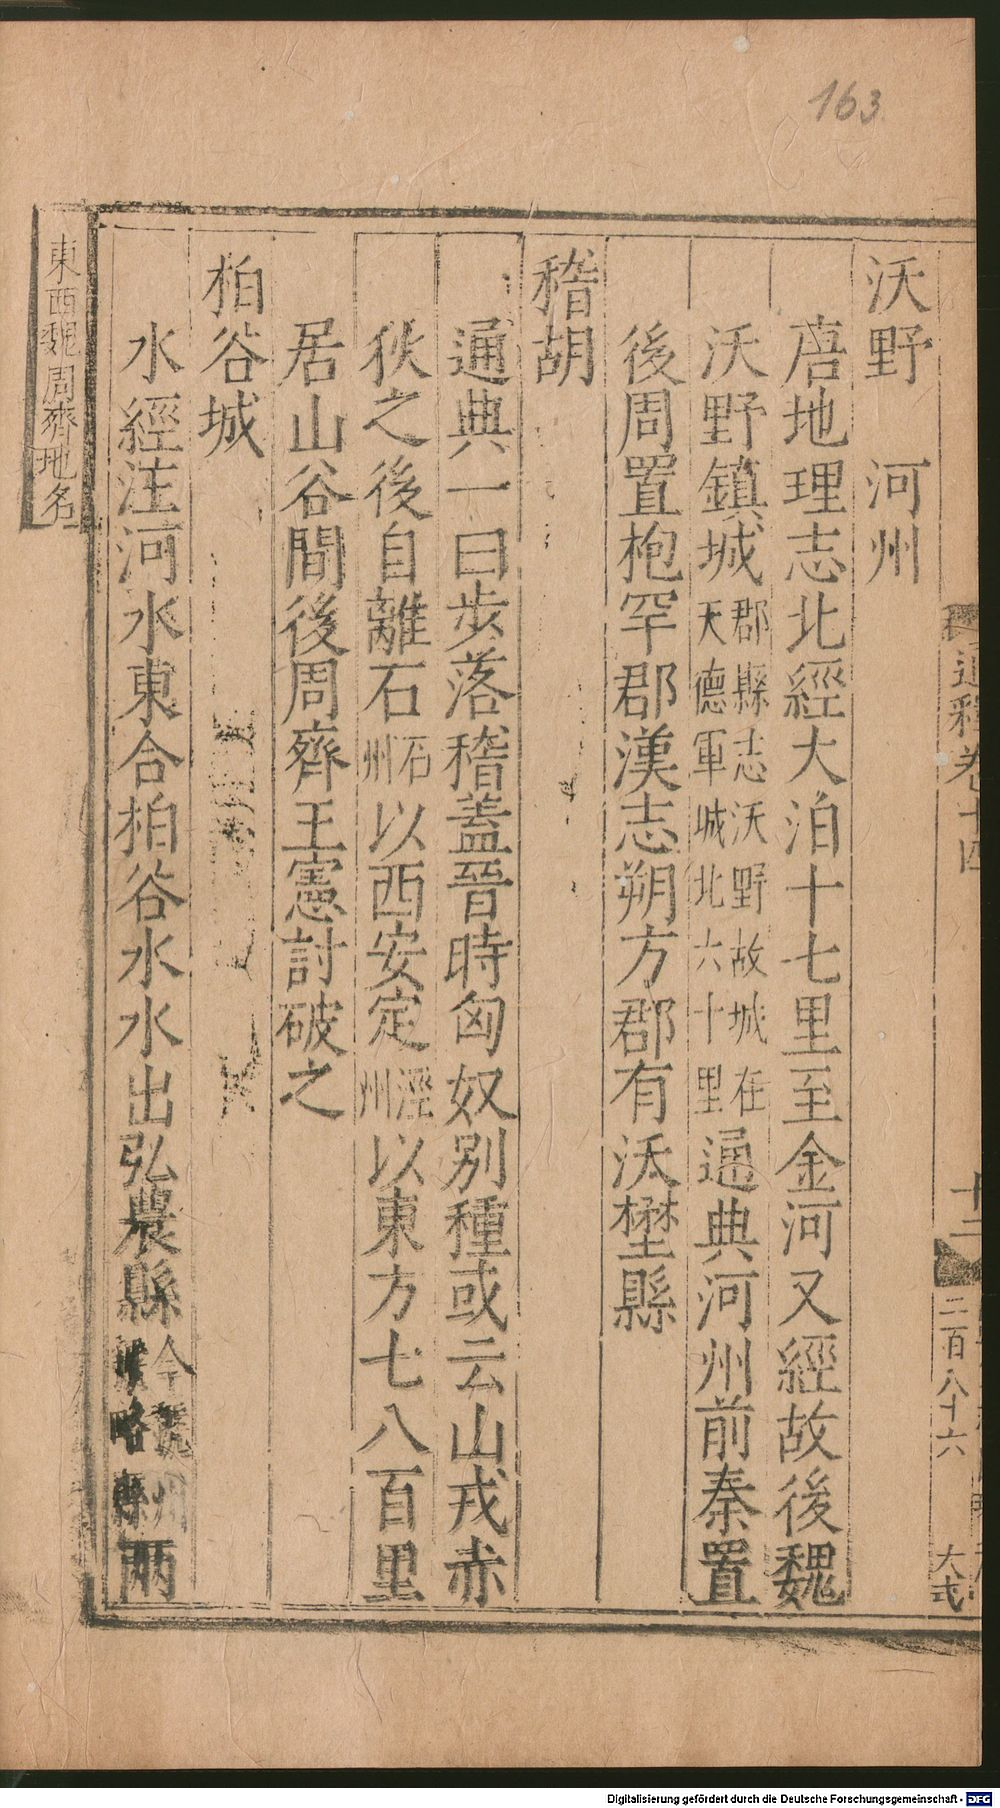 163
通釋卷十四
十二
二百八十六
大弍
沃野 河州
唐地理志北經大泊十七里至金河又經故後魏
沃野鎮城郡縣志沃野故城在天德軍城北六十里通典河州前秦置
後周置枹罕郡漢志朔方郡有沃壄縣
稽胡
通典一曰步落稽蓋晉時匈奴別種或云山戎赤
狄之後自離石石州以西安定涇州以東方七八百里
居山谷間後周齊王憲討破之
柏谷城
水經注河水東合柏谷水水出弘農縣今虢州略縣兩
東西魏周齊地名
Digitalisierung gefördert durch die Deutsche Forschungsgemeinschaft - DFG